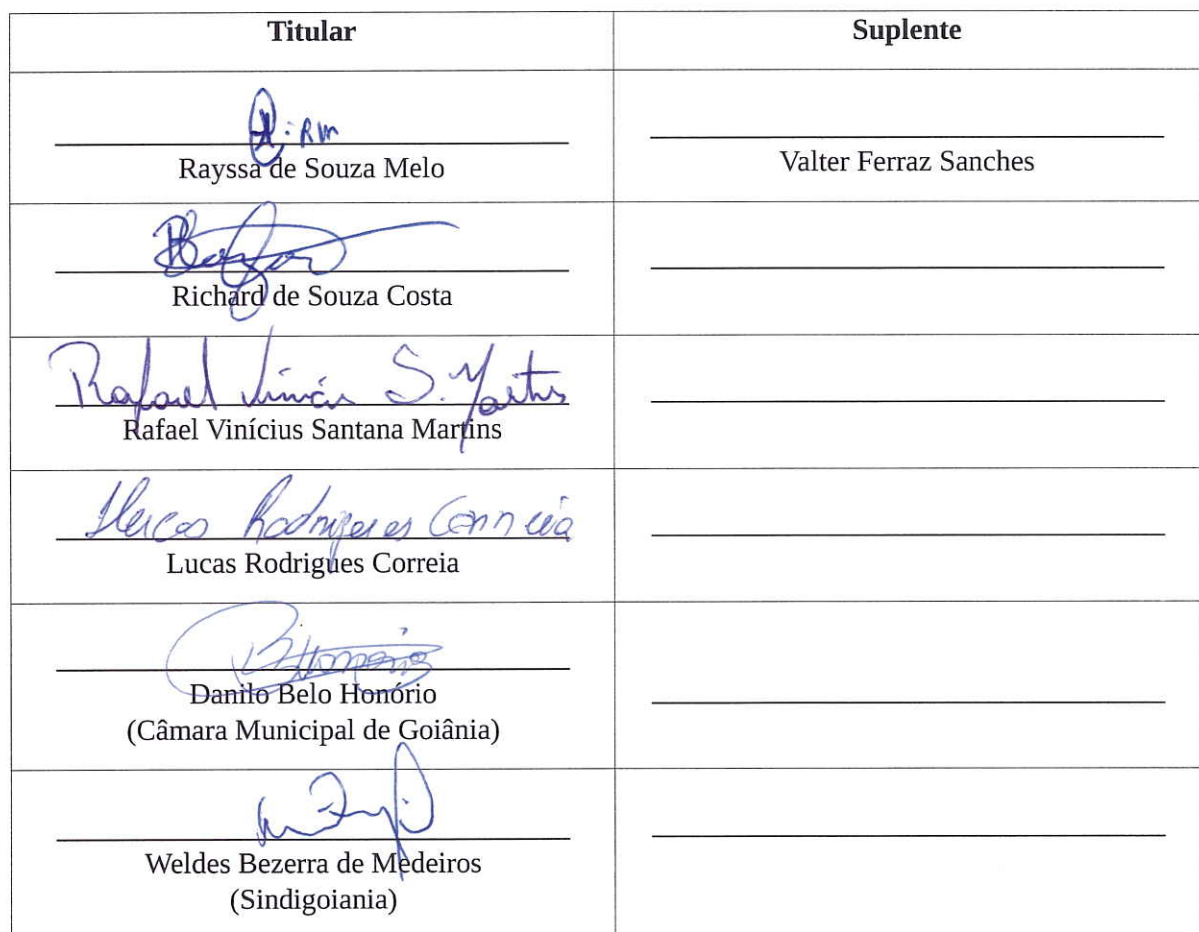 Titular Suplente
: RM
Rayssa de Souza Melo Valter Ferraz Sanches
Richard de Souza Costa
Rafael Vinícius S. Martins
Rafael Vinícius Santana Martins
Lucas Rodrigues Correia
Lucas Rodrigues Correia
Danilo Belo Honório
(Câmara Municipal de Goiânia)
Weldes Bezerra de Medeiros
(Sindigoiania)